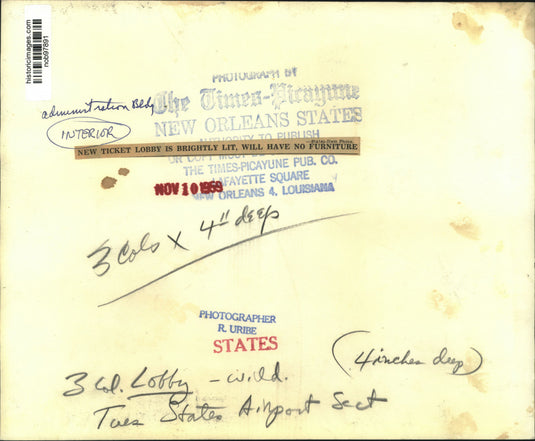 historicimages.com
nob97891
PHOTOGRAPH BY
The Times-Picayune
NEW ORLEANS STATES
AUTHORITY TO PUBLISH
administration Bldg
INTERIOR
NEW TICKET LOBBY IS BRIGHTLY LIT, WILL HAVE NO FURNITURE
—States-Item Photo.
OR COPY MUST
THE TIMES-PICAYUNE PUB. CO.
LAFAYETTE SQUARE
NEW ORLEANS 4, LOUISIANA
NOV 10 1959
3 Cols x 4" deep
PHOTOGRAPHER
R. URIBE
STATES
(4 inches deep)
3 Col. Lobby - wild.
Tues States Airport Sect